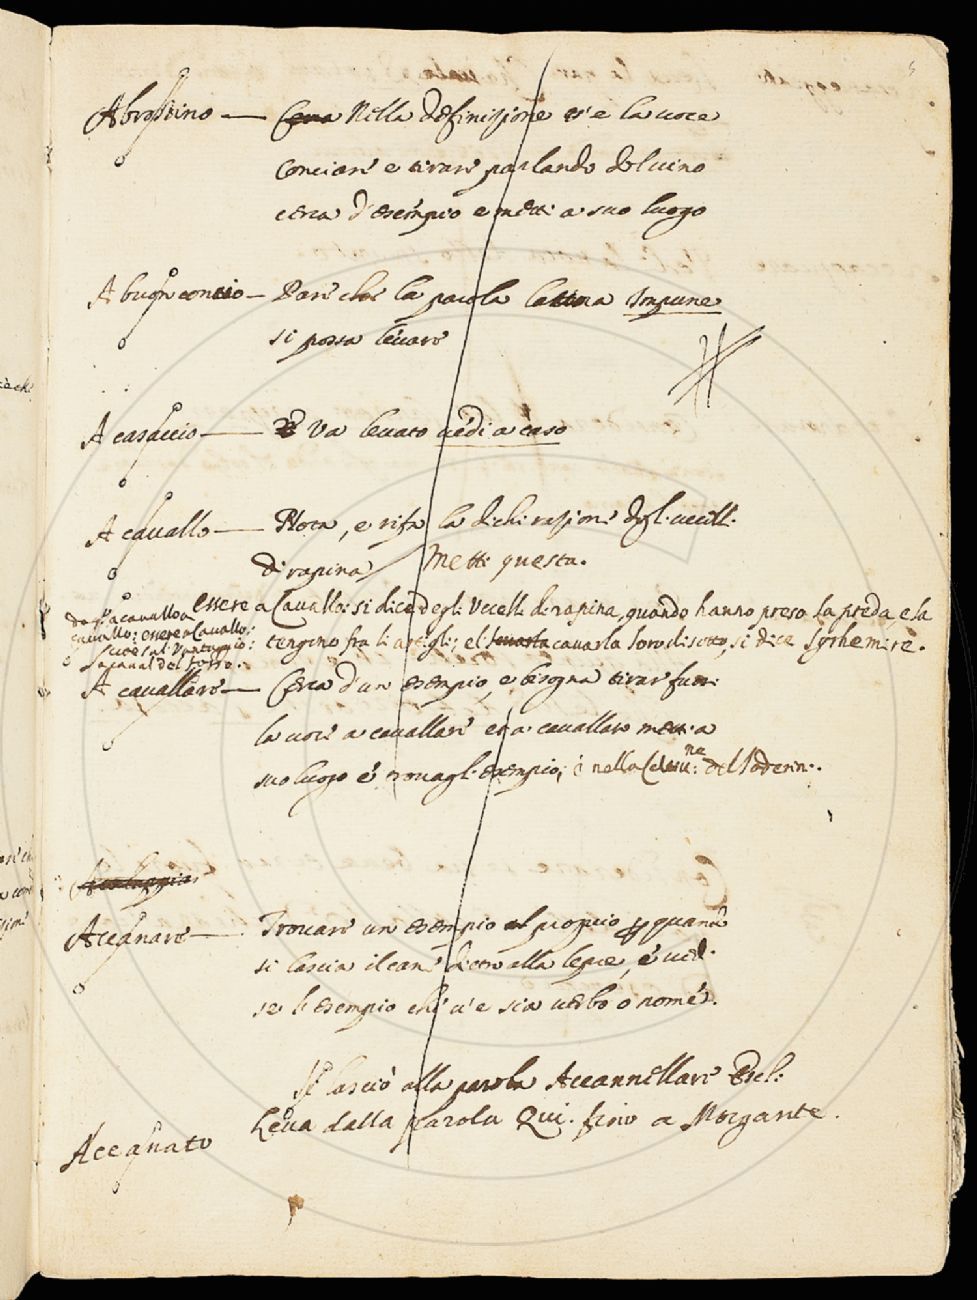 Abrostino — Cerca Nella definizione vi è la voce
Conciare e tirare parlando del vino
cerca d'esempio e metti a suo luogo
A buon conto — Pare che la parola latina Impune
si possa levare
A casaccio — Va levato vedi a caso
A cavallo — Nota, e rifa la dichirazione degl: uccill:
di rapina / Metti questa.
Essere a Cavallo: si dice degl: Uccelli di rapina, quando hanno preso la preda, e la
tengono fra li artigli; e il cavarla loro di sotto, si dice
dopo a cavallo a
cavallo: essere a Cavallo:
cioè al Vantaggio:
A cavallare — Cerca d'un esempio, e bisogna tirar fuori
la voce a cavallare et a cavallaro metti a
suo luogo e trovagl: esempio; è nella del
Accanare — Trovare un esempio al proprio quando
si lascia il cane dietro alla lepre, e vedi
se l'esempio che v'è sia verbo o nome.
Si lasciò alla parola Accannellare
Accanato
Leva dalla parola Qui. fino a Morgante.